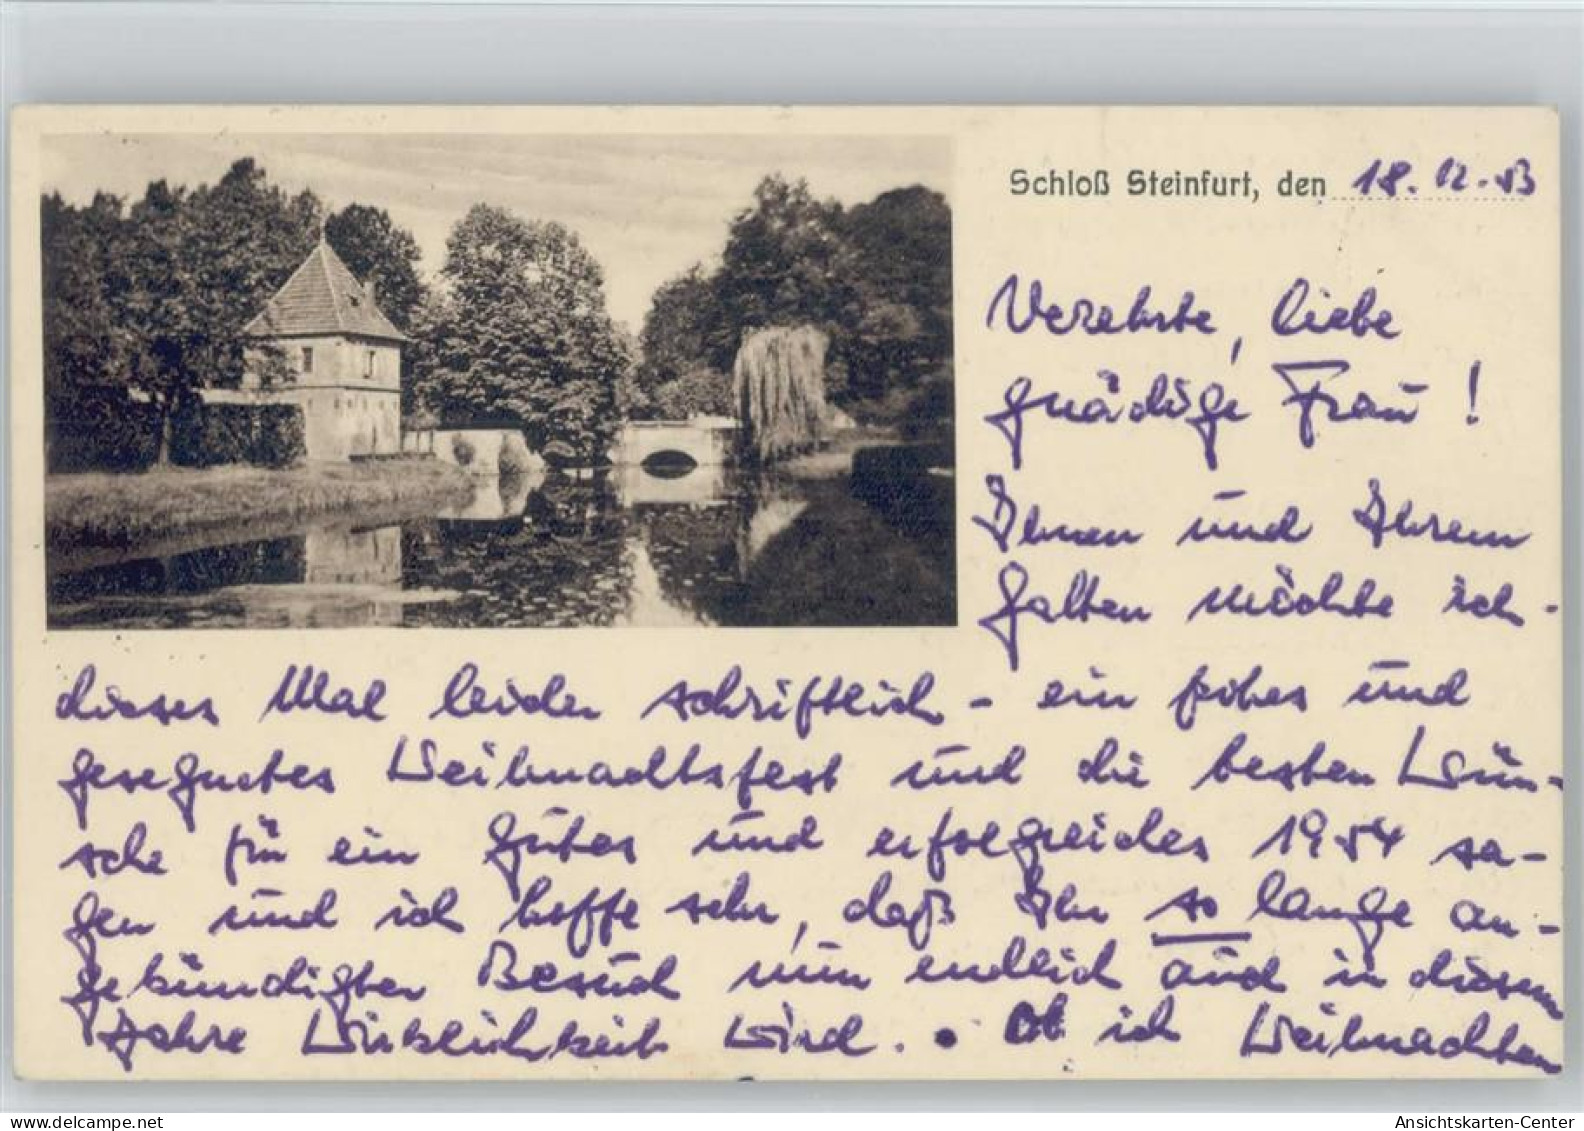 Schloß Steinfurt, den 18.12.53
Verehrte, liebe
gnädige Frau!
Ihnen und Ihrem
Gatten möchte ich -
dieses Mal leider schriftlich - ein frohes und
gesegnetes Weihnachtsfest und die besten Wün-
sche für ein gutes und erfolgreiches 1954 sa-
gen und ich hoffe sehr, daß Ihr so lange an-
gekündigter Besuch nun endlich auch in diesem
Jahre Wirklichkeit wird. . Ob ich Weihnachten
www.delcampe.net
Ansichtskarten-Center